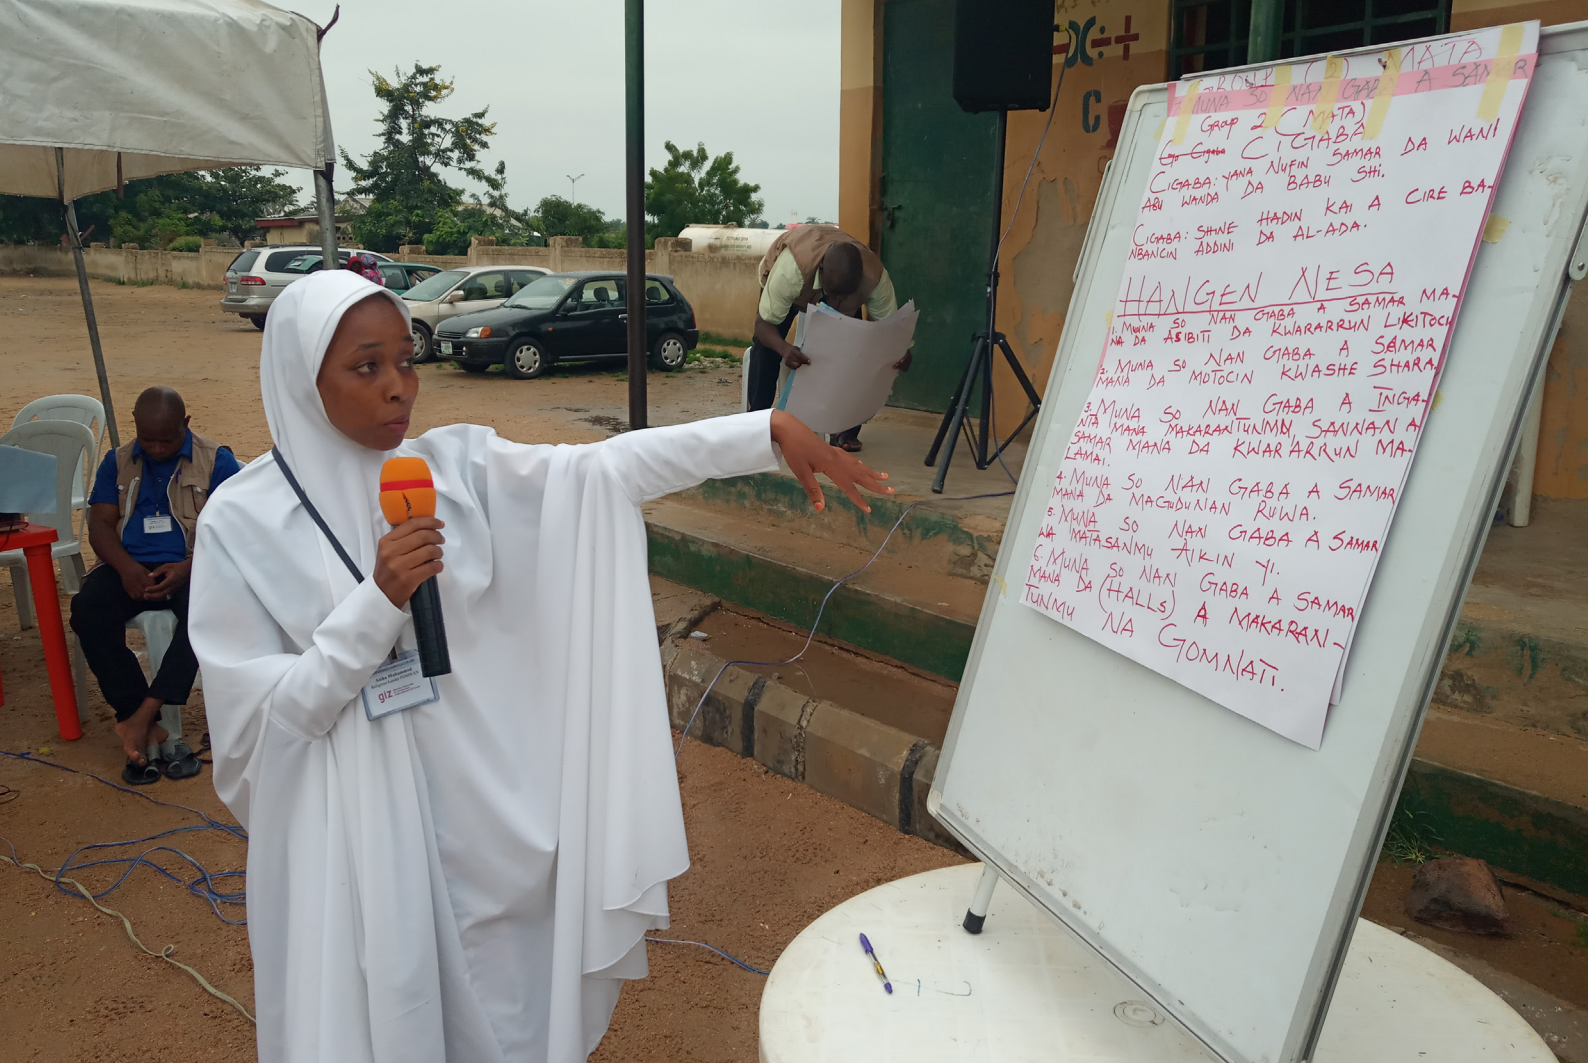 GROUP (2) MATA
MUNA SO NAN GABA A SAMAR
Group 2 (MATA)
CIGABA
CIGABA: YANA NUFIN SAMAR DA WANI
ABU WANDA DA BABU SHI.
CIGABA: SHINE HADIN KAI A CIRE BA-
NBANCIN ADDINI DA AL-ADA.
HANGEN NESA
1. MUNA SO NAN GABA A SAMAR MA-
NA DA ASIBITI DA KWARARRUN LIKITOCI
2. MUNA SO NAN GABA A SAMAR
MANA DA MOTOCIN KWASHE SHARA.
3. MUNA SO NAN GABA A INGA-
NTA MANA MAKARANTUNMU SANNAN A
SAMAR MANA DA KWARARRUN MA-
LAMAI.
4. MUNA SO NAN GABA A SAMAR
MANA DA MAGUDUNAN RUWA.
5. MUNA SO NAN GABA A SAMAR
WA MATASANMU AIKIN YI.
6. MUNA SO NAN GABA A SAMAR
MANA DA (HALLS) A MAKARAN-
TUNMU NA GOMNATI.
giz
C